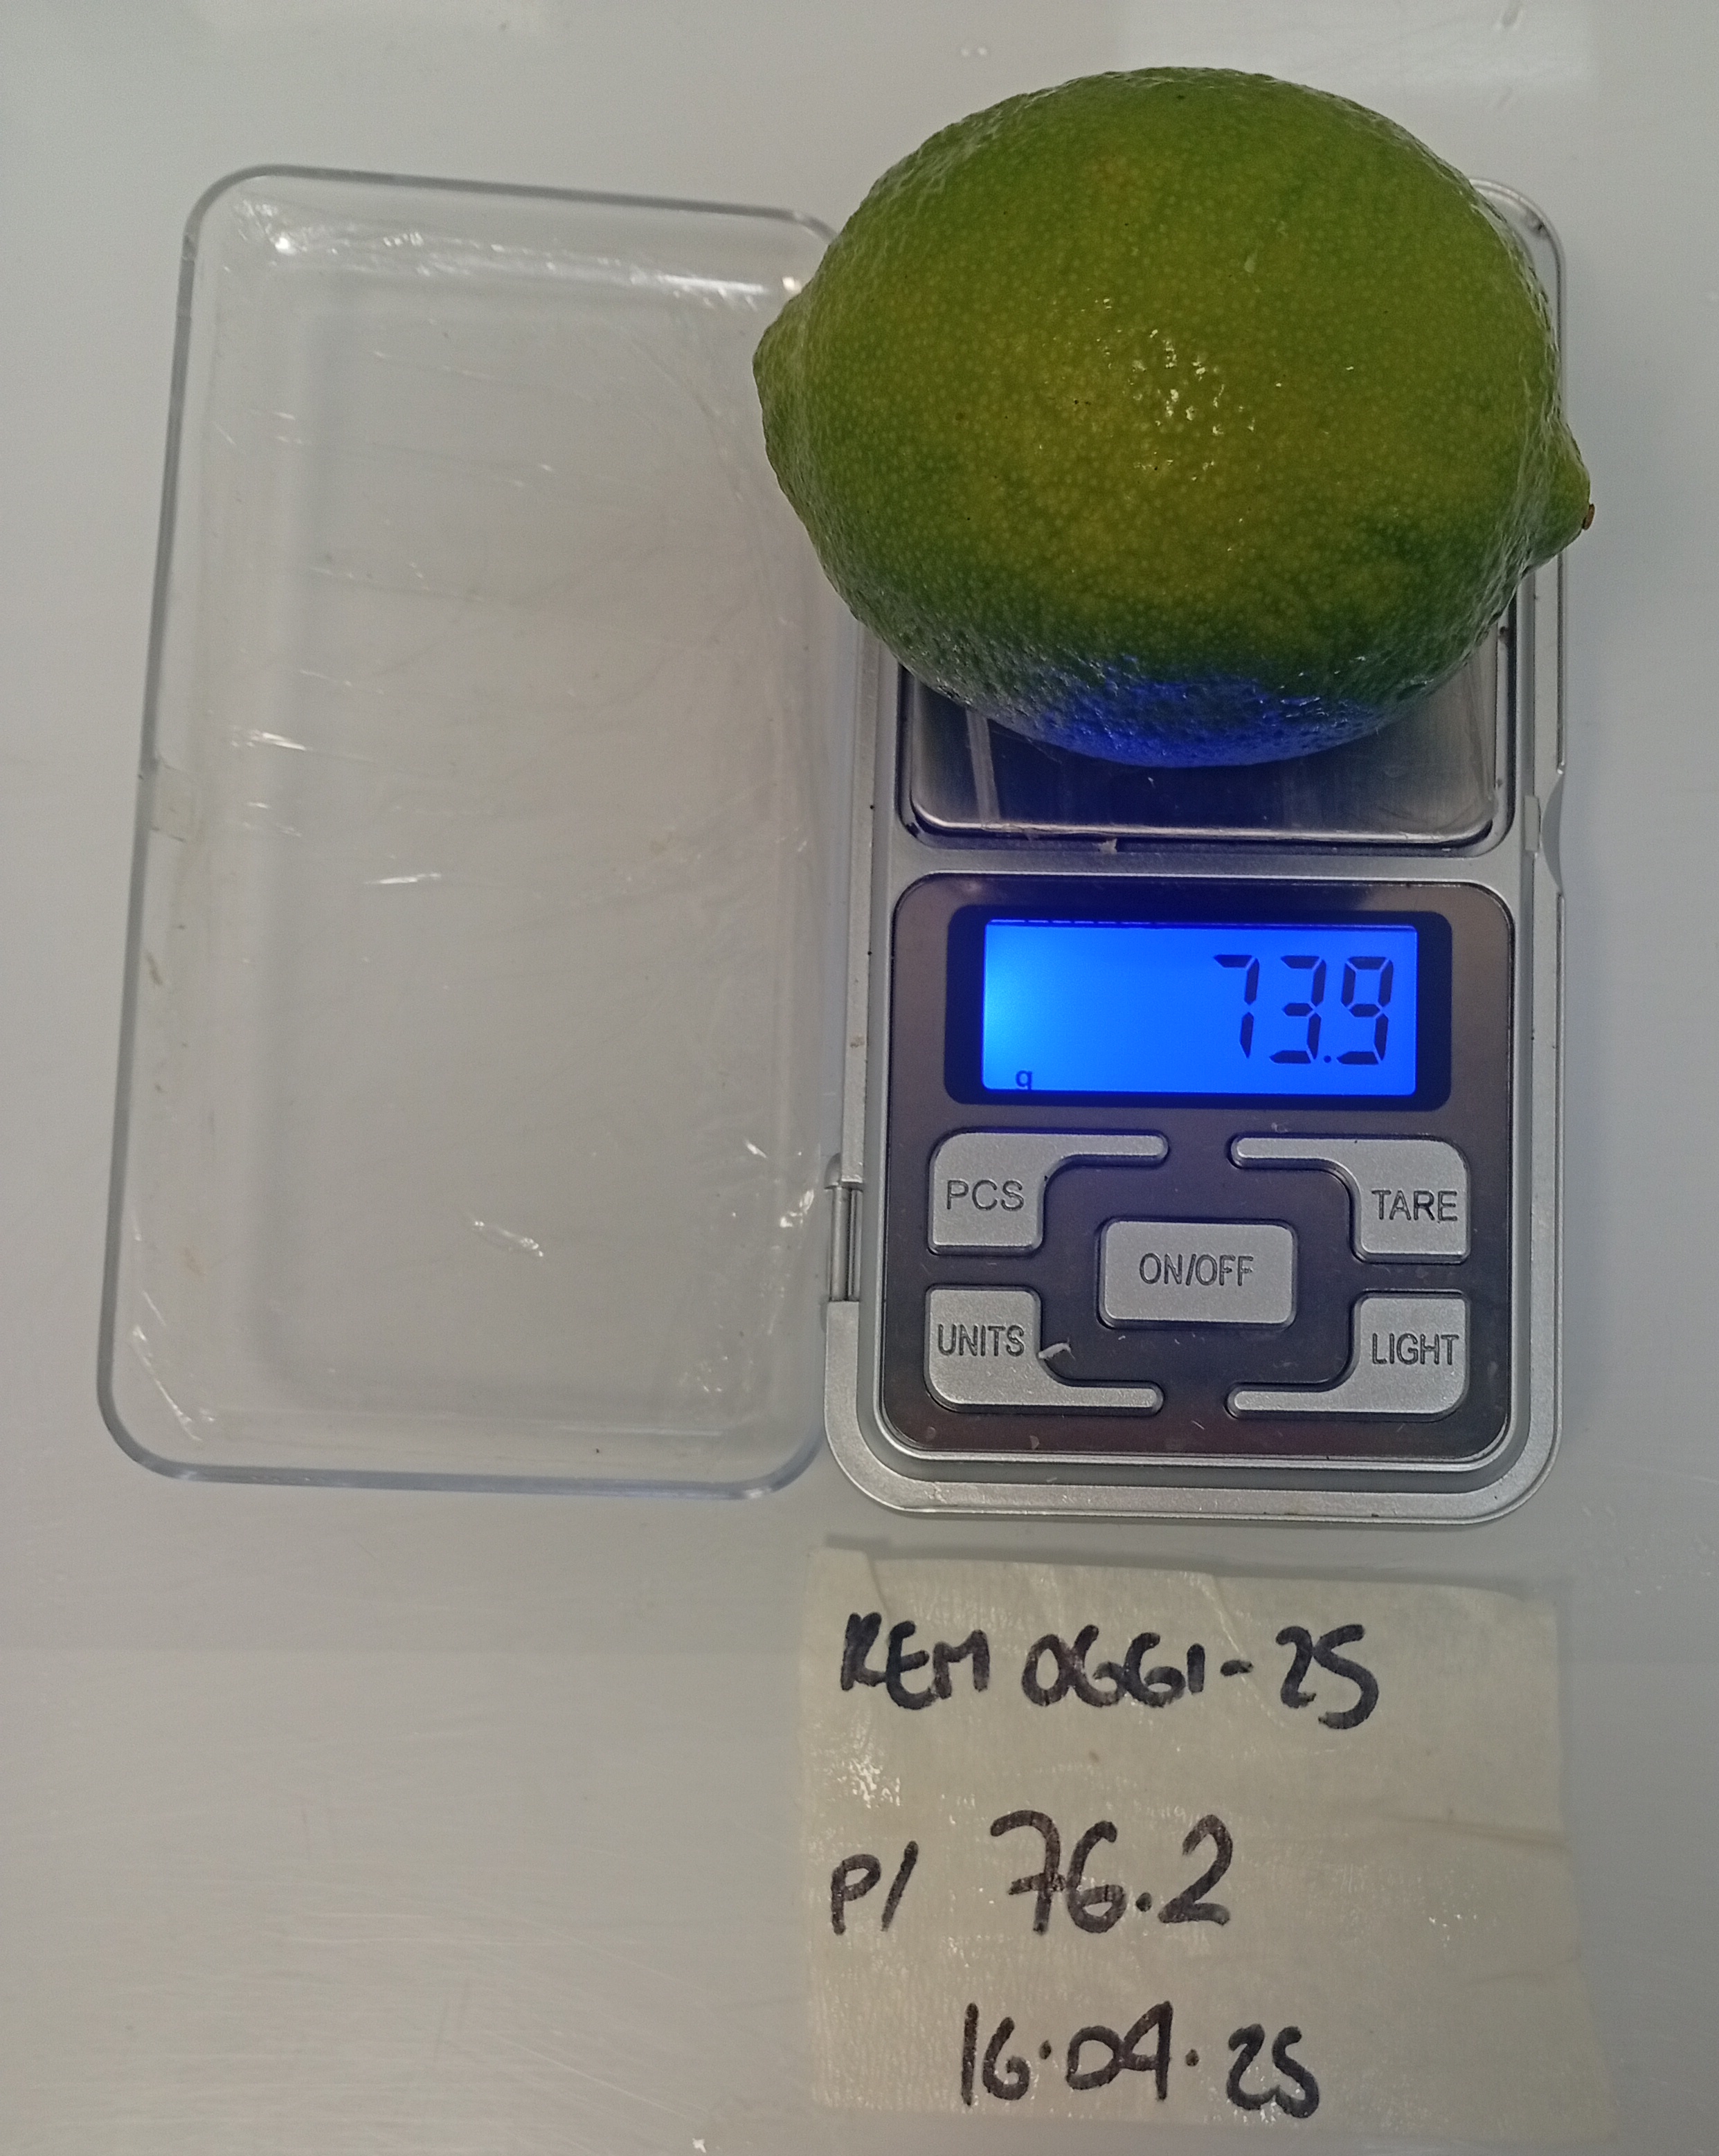 73.9
g
PCS
TARE
ON/OFF
UNITS
LIGHT
REM 0661-25
P/ 76.2
16.04.25